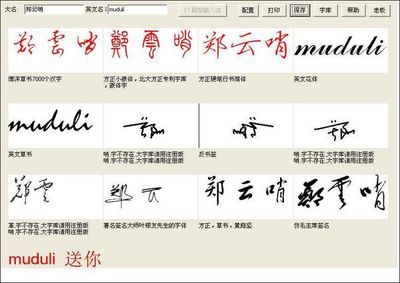 大名: 郑云哨 英文名: muduli F1 鼠标输入法 配置 打印 保存 字库 帮助 老板
郑雲哨 鄭雲哨 郑云哨 muduli
博洋草书7000个汉字 方正小篆体,北大方正专利字库,篆体字 方正硬笔行书简体 英文花体
muduli
英文草书 哨,字不存在,大字库请用注册版 反书签 哨,字不存在,大字库请用注册版
哨,字不存在,大字库请用注册版 哨,字不存在,大字库请用注册版
郑云 郑云 郑云哨 鄭雲哨
草,字不存在,大字库请用注册版 著名签名大师叶根友先生的字体 方正,草书,黄庭坚 仿毛主席签名
哨,字不存在,大字库请用注册版
muduli 送你